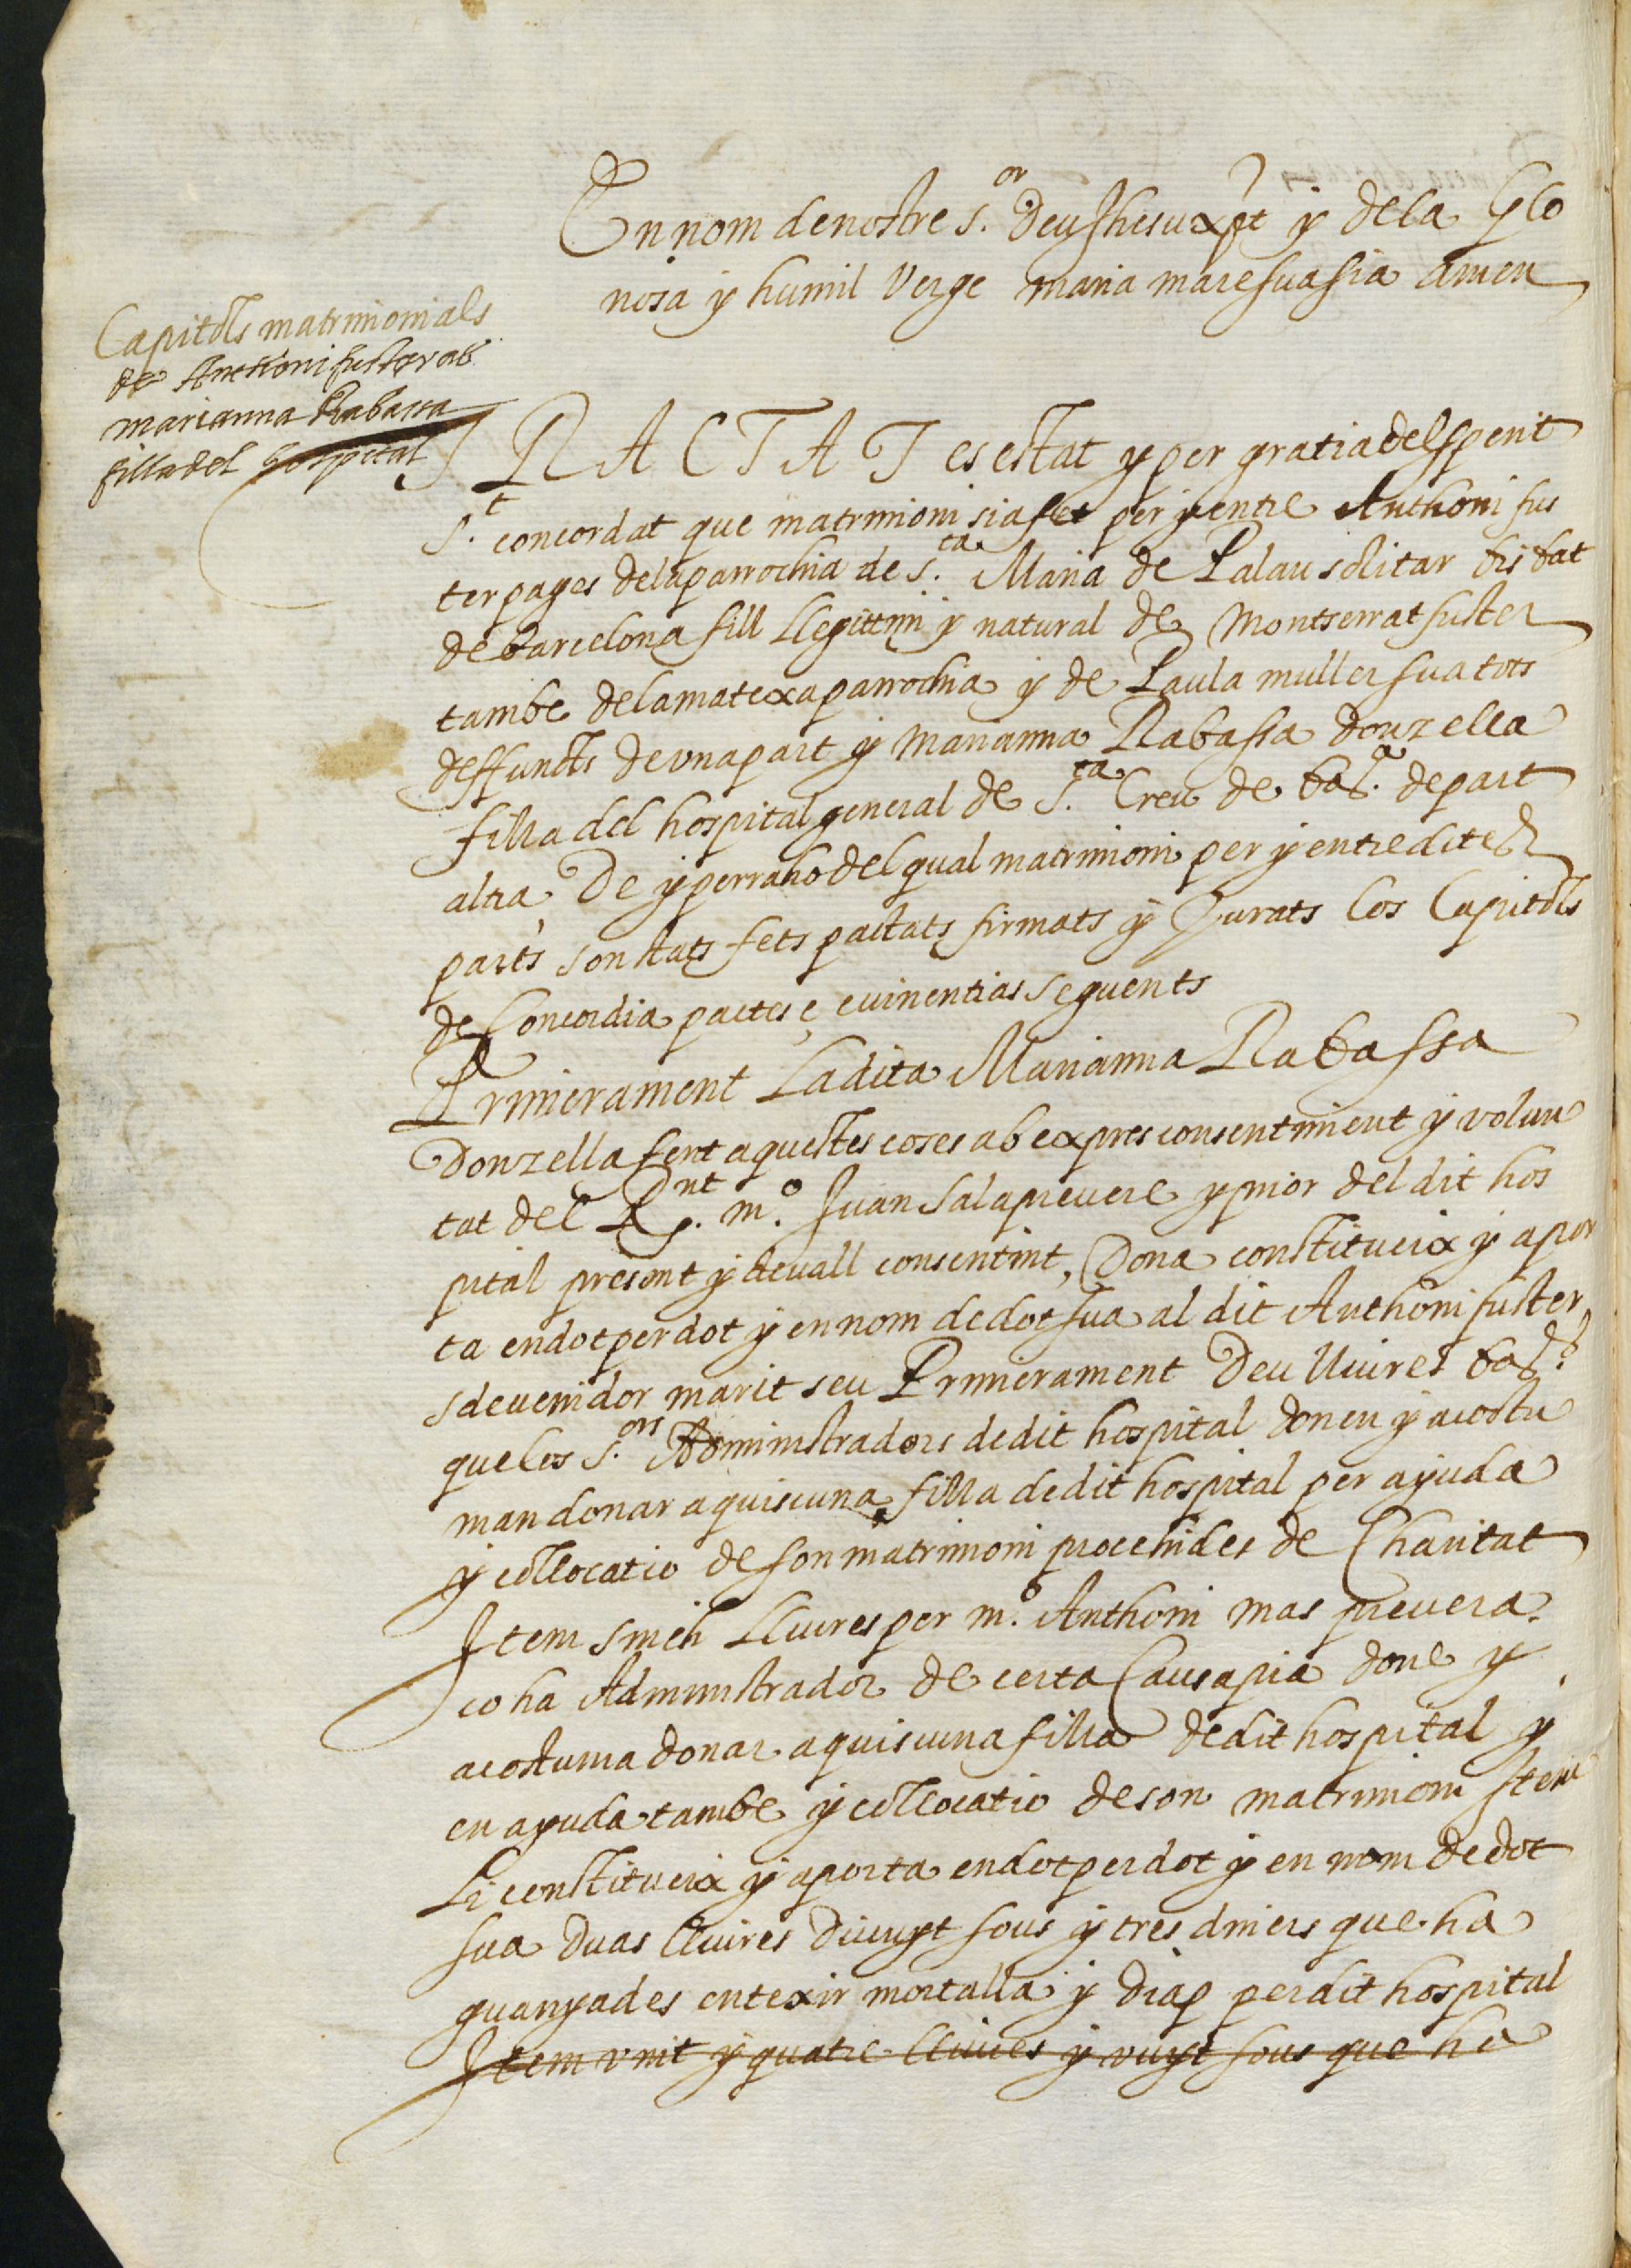 En nom de nostre S.or Deu Jhesuxpt y de la Glo
riosa y humil Verge maria mare sua sia amen
Capitols matrimonials
de Anthoni fuster ab
marianna Rabassa
filla del hospital
TRACTAT es estat y per gratia del sperit
S.t concordat que matrimoni sia fet per y entre Anthoni fus
ter pages de la parrochia de S.ta Maria de Palau solitar bisbat
de Barcelona fill Llegittim y natural de Montserrat fuster
tambe de la matexa parrochia y de Paula muller sua tots
deffuncts de vna part y Marianna Rabassa donzella
filla del hospital general de S.ta Creu de bar.a de part
altra De y per raho del qual matrimoni per y entre dites
parts son stats fets pactats firmats y Jurats los Capitols
de Concordia pactes e euinentias seguents
Primerament La dita Marianna Rabassa
Donzella fent aquestes coses ab expres consentiment y volun
tat del R.nt m.o Juan Sala preuere y prior del dit hos
pital present y devall consentint, Dona constitueix y apor
ta en dot per dot y en nom de dot sua al dit Anthoni fuster
sdeuenidor marit seu Primerament Deu lliures bar.s
que los S.ors Administradors de dit hospital donen y acostu
man donar a quiscuna filla de dit hospital per ayuda
y collocatio de son matrimoni procehides de Charitat
Item sinch Lliures per m.o Anthoni mas preuera
co ha Administrador de certa Causa pia done y
acostuma donar a quiscuna filla de dit hospital y
en ayuda tambe y collocatio de son matrimoni Item
Li constitueix y aporta en dot per dot y en nom de dot
sua Duas lliures Diuuyt sous y tres diners que ha
guanyades en texir mortalla y Drap per dit hospital
Item vint y quatre lliures y vuyt sous que ha